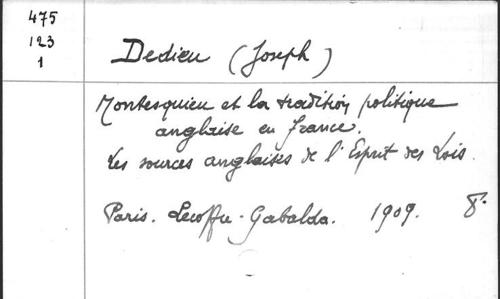 475
123
1
Dedieu (Joseph)
Montesquieu et la tradition politique
anglaise en France.
Les sources anglaises de l'Esprit des Lois.
Paris. Lecoffre-Gabalda. 1909. 8°.